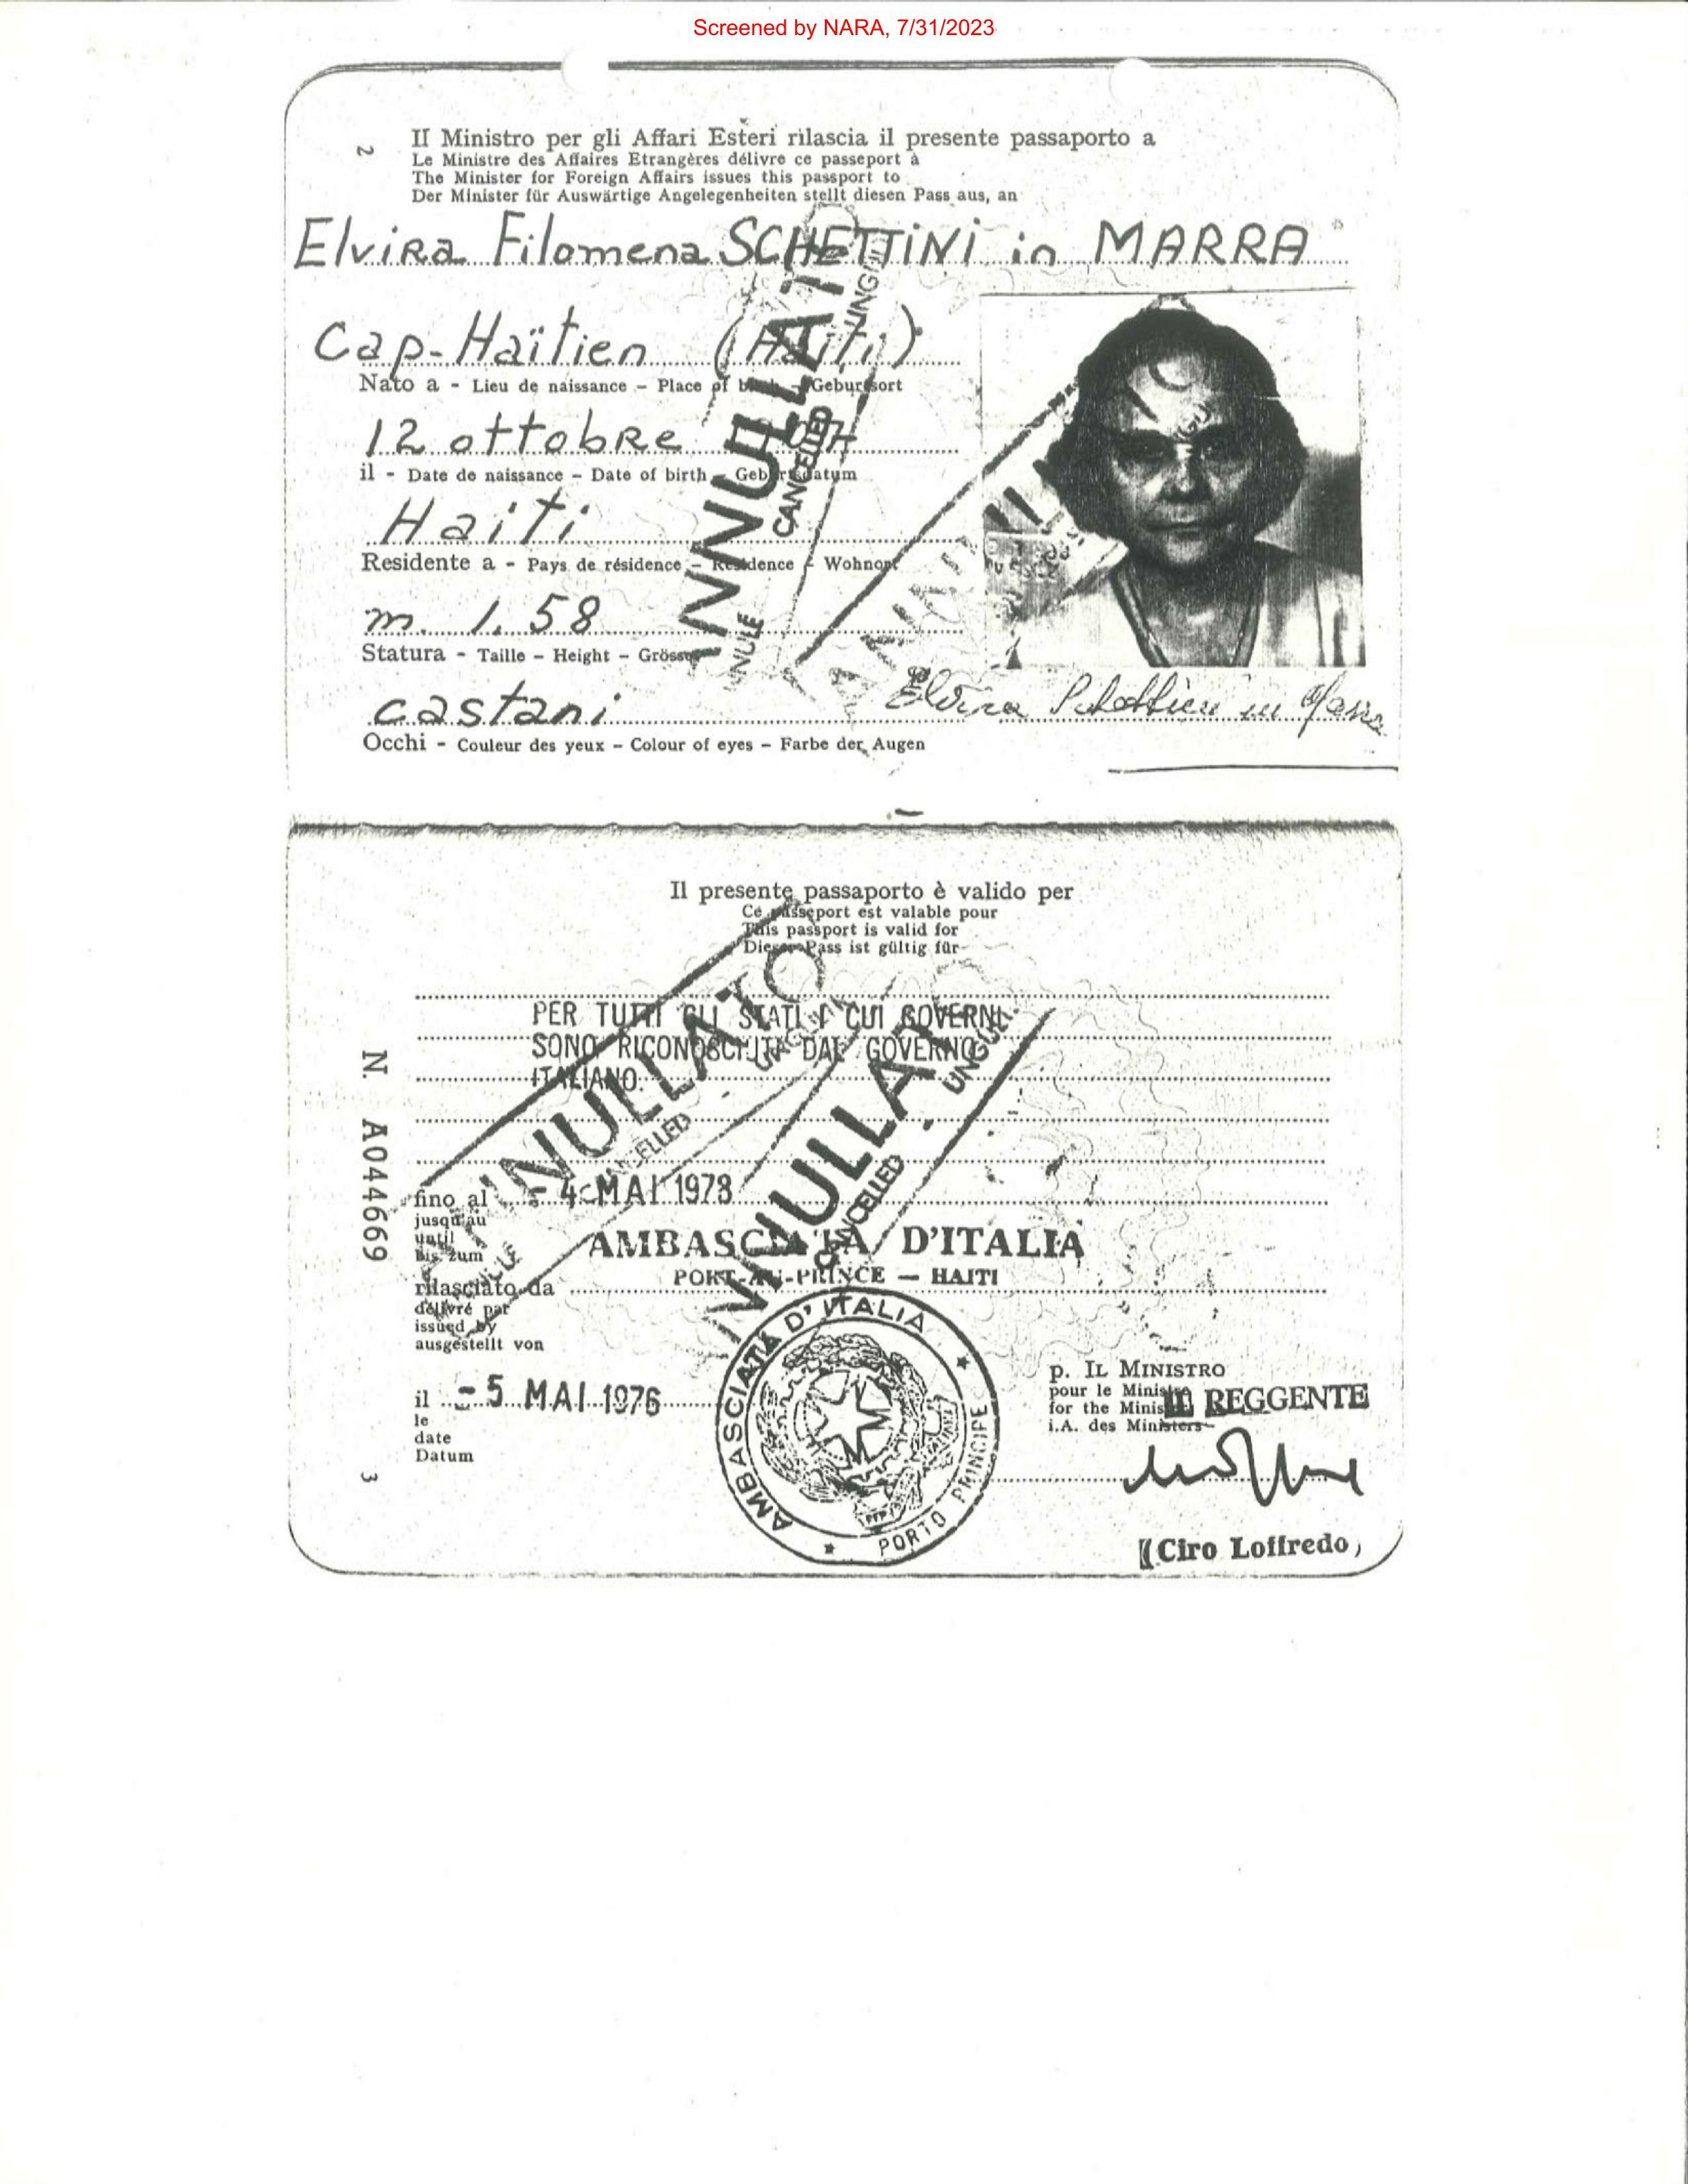 Screened by NARA, 7/31/2023
2
Il Ministro per gli Affari Esteri rilascia il presente passaporto a
Le Ministre des Affaires Etrangères délivre ce passeport à
The Minister for Foreign Affairs issues this passport to
Der Minister für Auswärtige Angelegenheiten stellt diesen Pass aus, an
Elvira Filomena SCHETTINI in MARRA
Cap-Haïtien (Haiti)
Nato a - Lieu de naissance - Place of birth - Geburtsort
12 ottobre
il - Date de naissance - Date of birth - Geburtsdatum
Haiti
Residente a - Pays de résidence - Residence - Wohnort
m. 1.58
Statura - Taille - Height - Grösse
castani
Elvira Schettini in Marra
Occhi - Couleur des yeux - Colour of eyes - Farbe der Augen
CANCELLED
Il presente passaporto è valido per
Ce passeport est valable pour
This passport is valid for
Dieser Pass ist gültig für
PER TUTTI GLI STATI I CUI GOVERNI
SONO RICONOSCIUTI DAL GOVERNO
ITALIANO.
ANNULLATO
CANCELLED
CANCELLED
N. A044669
fino al - 4 MAI 1978
jusqu'au
until
bis zum
AMBASCIATA D'ITALIA
PORT-AU-PRINCE — HAITI
rilasciato da
délivré par
issued by
ausgestellt von
AMBASCIATA D'ITALIA
PORTO PRINCIPE
il - 5 MAI 1976
le
date
Datum
p. IL MINISTRO
pour le Ministre
for the Minister
i.A. des Ministers
IL REGGENTE
(Ciro Loffredo)
3